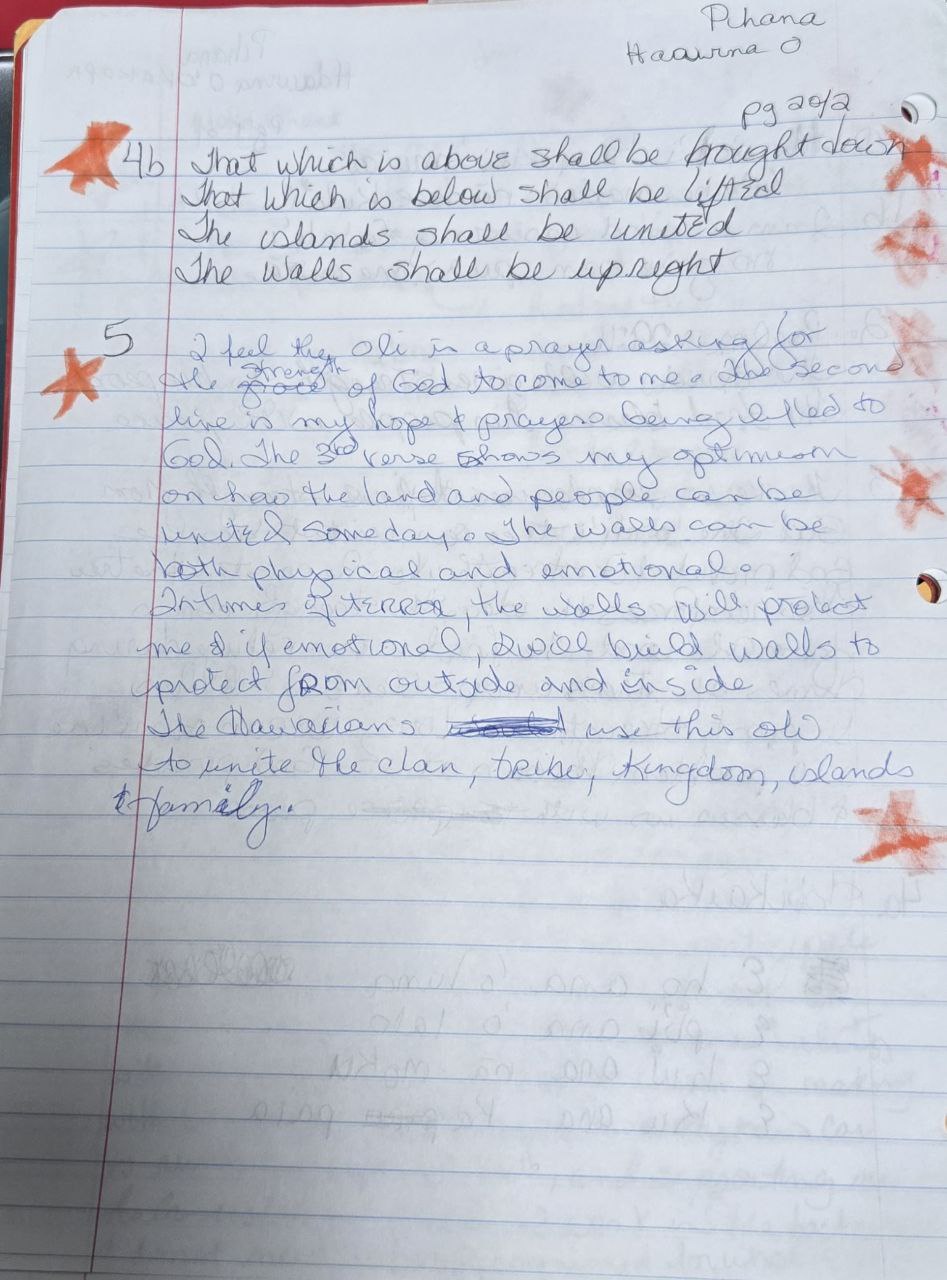 Pihana
Haawina O
pg 2 of 2
4b That which is above shall be brought down
That which is below shall be lifted
The islands shall be united
The walls shall be upright
5 I feel the Oli is a prayer asking for
the strength of God to come to me. The second
line is my hope & prayers being lifted to
God. The 3rd verse shows my optimism
on how the land and people can be
united someday. The walls can be
both physical and emotional.
In times of terror, the walls will protect
me & if emotional, I will build walls to
protect from outside and inside
The Hawaiians use this oli
to unite the clan, tribe, Kingdom, islands
& family.